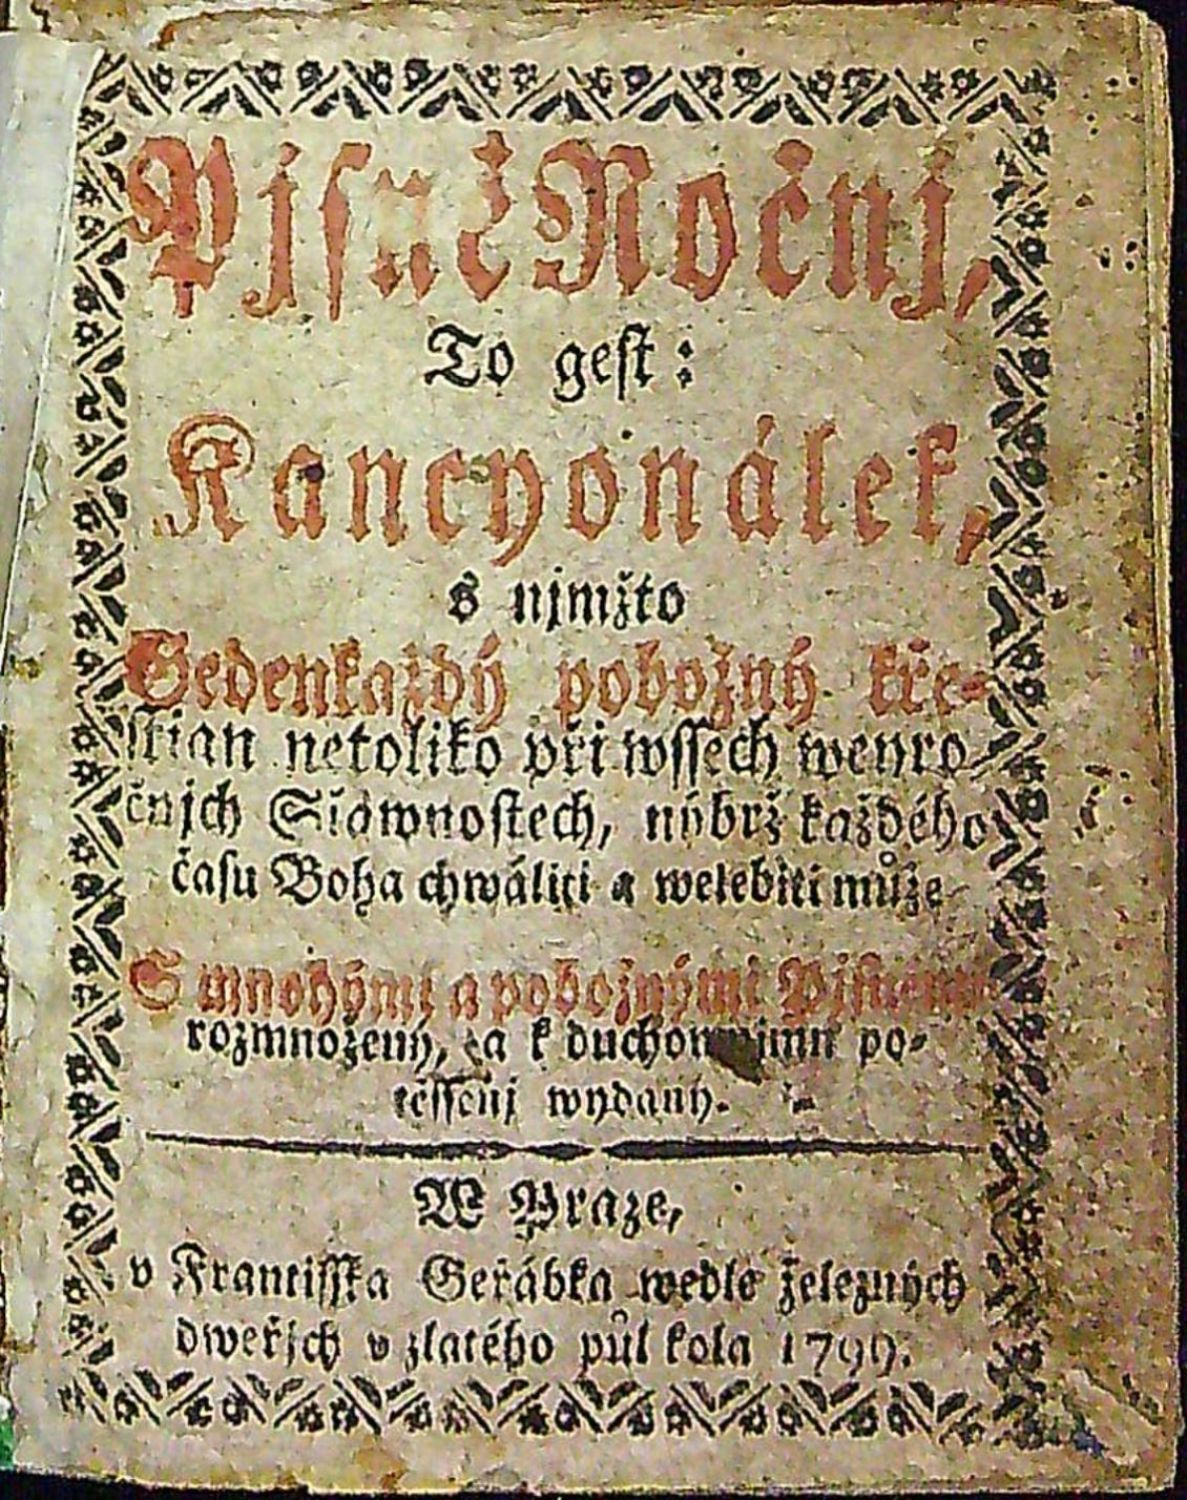 Pjsně Ročnj,
To gest:
Kancyonálek,
s njmžto
Gedenkaždý pobožný kře-
stian netoliko při wssech weyro
čnjch Slawnostech, nýbrž každého
času Boha chwáliti a welebiti může
S mnohými a pobožnými Pjsněmi
rozmnožený, a k duchownjmu po-
těssenj wydaný.
W Praze,
v Frantisska Geřábka wedle železných
dweřjch v zlatého půl kola 1799.